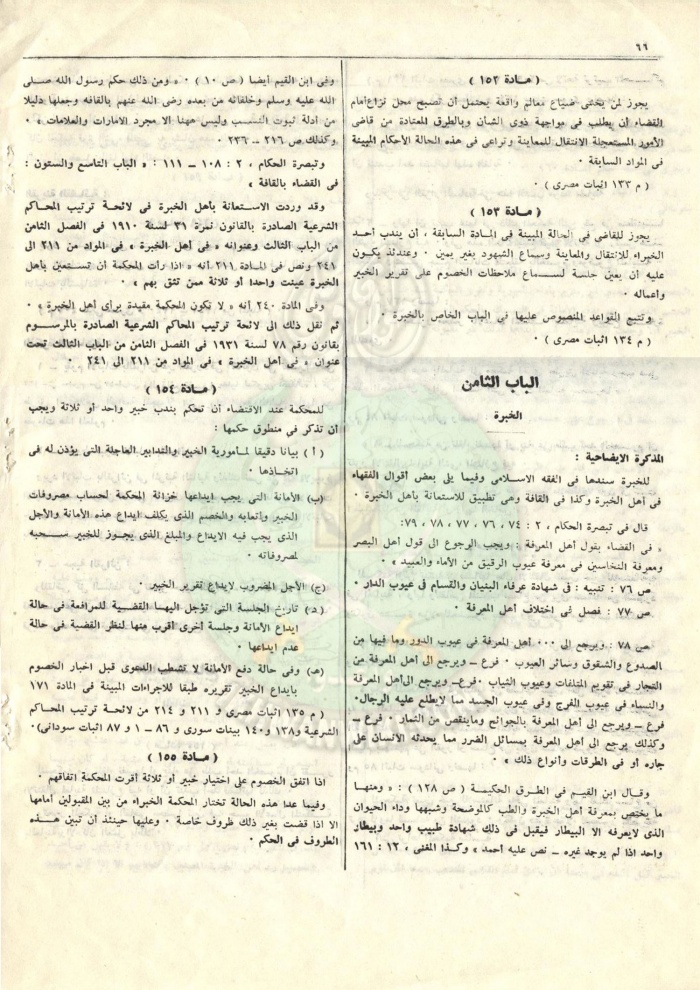 ٦٦
( مادة ١٥٢ )
يجوز لمن يخشى ضياع معالم واقعة يحتمل أن تصبح محل نزاع أمام
القضاء أن يطلب فى مواجهة ذوى الشأن وبالطرق المعتادة من قاضى
الأمور المستعجلة الانتقال للمعاينة وتراعى فى هذه الحالة الأحكام المبينة
فى المواد السابقة ٠
( م ١٣٣ اثبات مصرى ) ٠
( مادة ١٥٣ )
يجوز للقاضى فى الحالة المبينة فى المادة السابقة ، أن يندب أحد
الخبراء للانتقال والمعاينة وسماع الشهود بغير يمين ٠ وعندئذ يكون
عليه أن يعين جلسة لسماع ملاحظات الخصوم على تقرير الخبير
وأعماله ٠
وتتبع القواعد المنصوص عليها فى الباب الخاص بالخبرة ٠
( م ١٣٤ اثبات مصرى ) ٠
الباب الثامن
الخبرة
المذكرة الايضاحية :
للخبرة سندها فى الفقه الاسلامى وفيما يلى بعض أقوال الفقهاء
فى أهل الخبرة وكذا فى القافة وهى تطبيق للاستعانة بأهل الخبرة ٠
قال فى تبصرة الحكام ، ٢ : ٧٤ ، ٧٦ ، ٧٧ ، ٧٨ ، ٧٩ :
« فى القضاء بقول أهل المعرفة : ويجب الرجوع الى قول أهل البصر
ومعرفة النخاسين فى معرفة عيوب الرقيق من الأماء والعبيد » ٠
ص ٧٦ : تنبيه : فى شهادة عرفاء البنيان والقسام فى عيوب الدار ٠
ص ٧٧ : فصل فى اختلاف أهل المعرفة ٠
ص ٧٨ : ويرجع الى ٠٠٠ أهل المعرفة فى عيوب الدور وما فيها من
الصدوع والشقوق وسائر العيوب ٠ فرع ــ ويرجع الى أهل المعرفة من
التجار فى تقويم المتلفات وعيوب الثياب ٠ فرع ــ ويرجع الى أهل المعرفة
والنساء فى عيوب الفرج وفى عيوب الجسد مما لايطلع عليه الرجال٠
فرع ــ ويرجع الى أهل المعرفة بالجوائح وماينقص من الثمار ٠ فرع ــ
وكذلك يرجع الى أهل المعرفة بمسائل الضرر مما يحدثه الانسان على
جاره أو فى الطرقات وأنواع ذلك » ٠
وقال ابن القيم فى الطرق الحكيمة ( ص ١٢٨ ) : « ومنها
ما يختص بمعرفة أهل الخبرة والطب كالموضحة وشبهها وداء الحيوان
الذى لايعرفه الا البيطار فيقبل فى ذلك شهادة طبيب واحد وبيطار
واحد اذا لم يوجد غيره ــ نص عليه أحمد » وكذا المغنى ، ١٢ : ١٦١
وفى ابن القيم أيضا ( ص ١٠ ) ٠ « ومن ذلك حكم رسول الله صلى
الله عليه وسلم وخلفائه من بعده رضى الله عنهم بالقافه وجعلها دليلا
من أدلة ثبوت النسب وليس ههنا الا مجرد الامارات والعلامات » ٠
وكذلك ص ٢١٦ ــ ٢٣٦ ٠
وتبصرة الحكام ، ٢ : ١٠٨ ــ ١١١ : « الباب التاسع والستون :
فى القضاء بالقافة »
وقد وردت الاستعانة بأهل الخبرة فى لائحة ترتيب المحاكم
الشرعية الصادرة بالقانون نمرة ٣١ لسنة ١٩١٠ فى الفصل الثامن
من الباب الثالث وعنوانه « فى أهل الخبرة » فى المواد من ٢١١ الى
٢٤١ ونص فى المادة ٢١١ أنه « اذا رأت المحكمة أن تستعين بأهل
الخبرة عينت واحدا أو ثلاثة ممن تثق بهم » ٠
وفى المادة ٢٤٠ أنه « لا تكون المحكمة مقيدة برأى أهل الخبرة » ٠
ثم نقل ذلك الى لائحة ترتيب المحاكم الشرعية الصادرة بالمرسوم
بقانون رقم ٧٨ لسنة ١٩٣١ فى الفصل الثامن من الباب الثالث تحت
عنوان « فى أهل الخبرة » فى المواد من ٢١١ الى ٢٤١ ٠
( مادة ١٥٤ )
للمحكمة عند الاقتضاء أن تحكم بندب خبير واحد أو ثلاثة ويجب
أن تذكر فى منطوق حكمها :
( أ ) بيانا دقيقا لمامورية الخبير والتدابير العاجلة التى يؤذن له فى
اتخاذها ٠
(ب) الأمانة التى يجب ايداعها خزانة المحكمة لحساب مصروفات
الخبير واتعابه والخصم الذى يكلف ايداع هذه الامانة والأجل
الذى يجب فيه الايداع والمبلغ الذى يجوز للخبير سحبه
لمصروفاته ٠
(ج) الأجل المضروب لايداع تقرير الخبير ٠
(د) تاريخ الجلسة التى تؤجل اليها القضية للمرافعة فى حالة
ايداع الأمانة وجلسة أخرى أقرب منها لنظر القضية فى حالة
عدم ايداعها ٠
(هـ) وفى حالة دفع الأمانة لا تشطب الدعوى قبل اخبار الخصوم
بايداع الخبير تقريره طبقا للاجراءات المبينة فى المادة ١٧١
( م ١٣٥ اثبات مصرى و ٢١١ و ٢١٤ من لائحة ترتيب المحاكم
الشرعية و١٣٨ و١٤٠ بينات سورى و ٨٦ ــ ١ و ٨٧ اثبات سودانى)٠
( مادة ١٥٥ )
اذا اتفق الخصوم على اختيار خبير أو ثلاثة أقرت المحكمة اتفاقهم ٠
وفيما عدا هذه الحالة تختار المحكمة الخبراء من بين المقبولين أمامها
الا اذا قضت بغير ذلك ظروف خاصة ٠ وعليها حينئذ أن تبين هذه
الظروف فى الحكم ٠